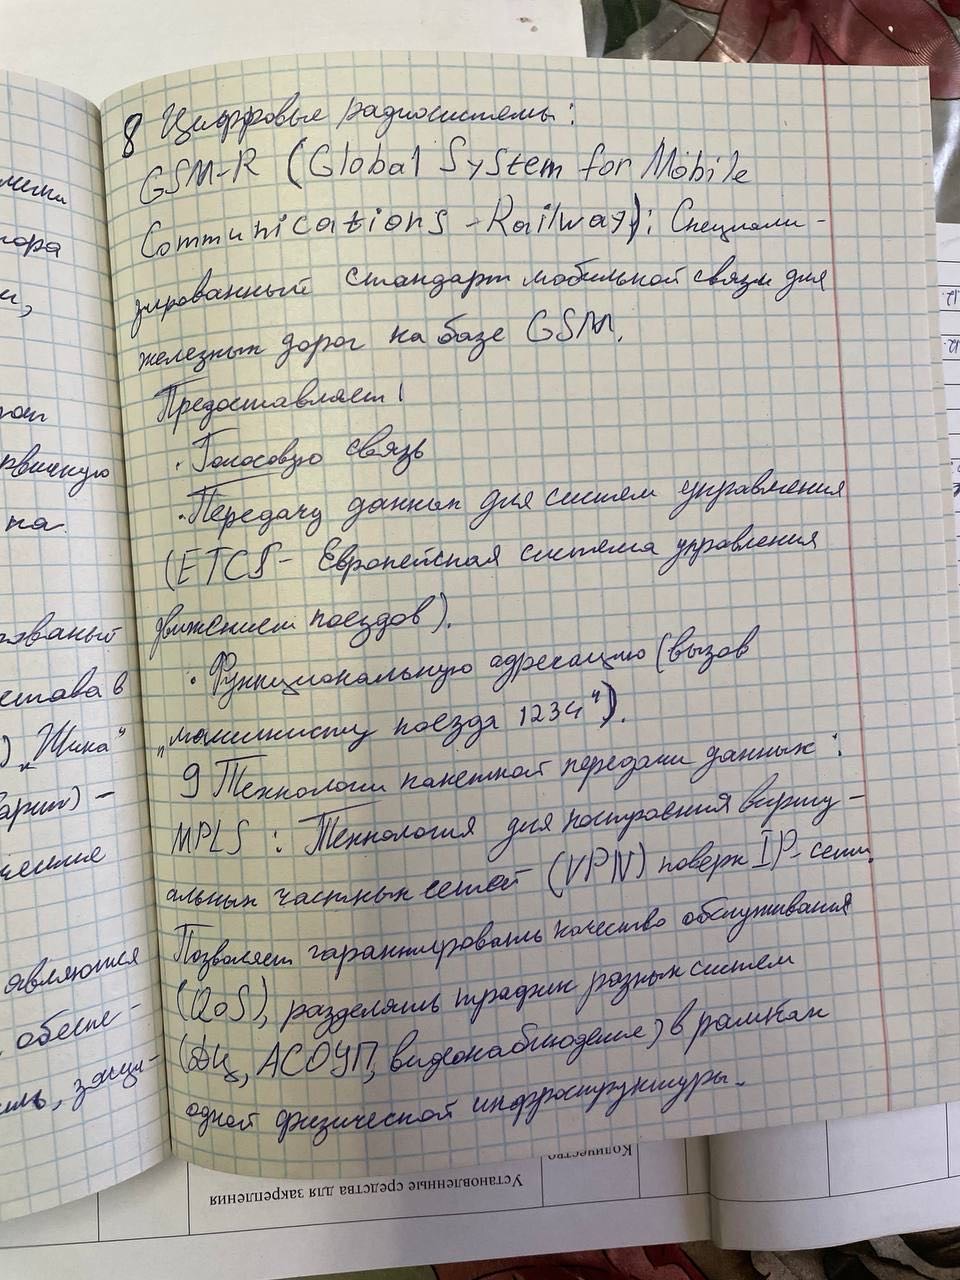 8 Цифровые радиосистемы:
GSM-R (Global System for Mobile
Communications - Railway): Специали-
зированный стандарт мобильной связи для
железных дорог на базе GSM.
Предоставляет:
· Голосовую связь
· Передачу данных для систем управления
(ETCS - Европейская система управления
движением поездов).
· Функциональную адресацию (вызов
"машинисту поезда 1234").
9 Технологии пакетной передачи данных:
MPLS : Технология для построения вирту-
альных частных сетей (VPN) поверх IP-сети.
Позволяет гарантировать качество обслуживания
(QoS), разделять трафик разных систем
(ДЦ, АСОУП, видеонаблюдение) в рамках
одной физической инфраструктуры.
рвичную
на
става в
) "Шина"
являются
обеспе-
Количество
Установленные средства для закрепления